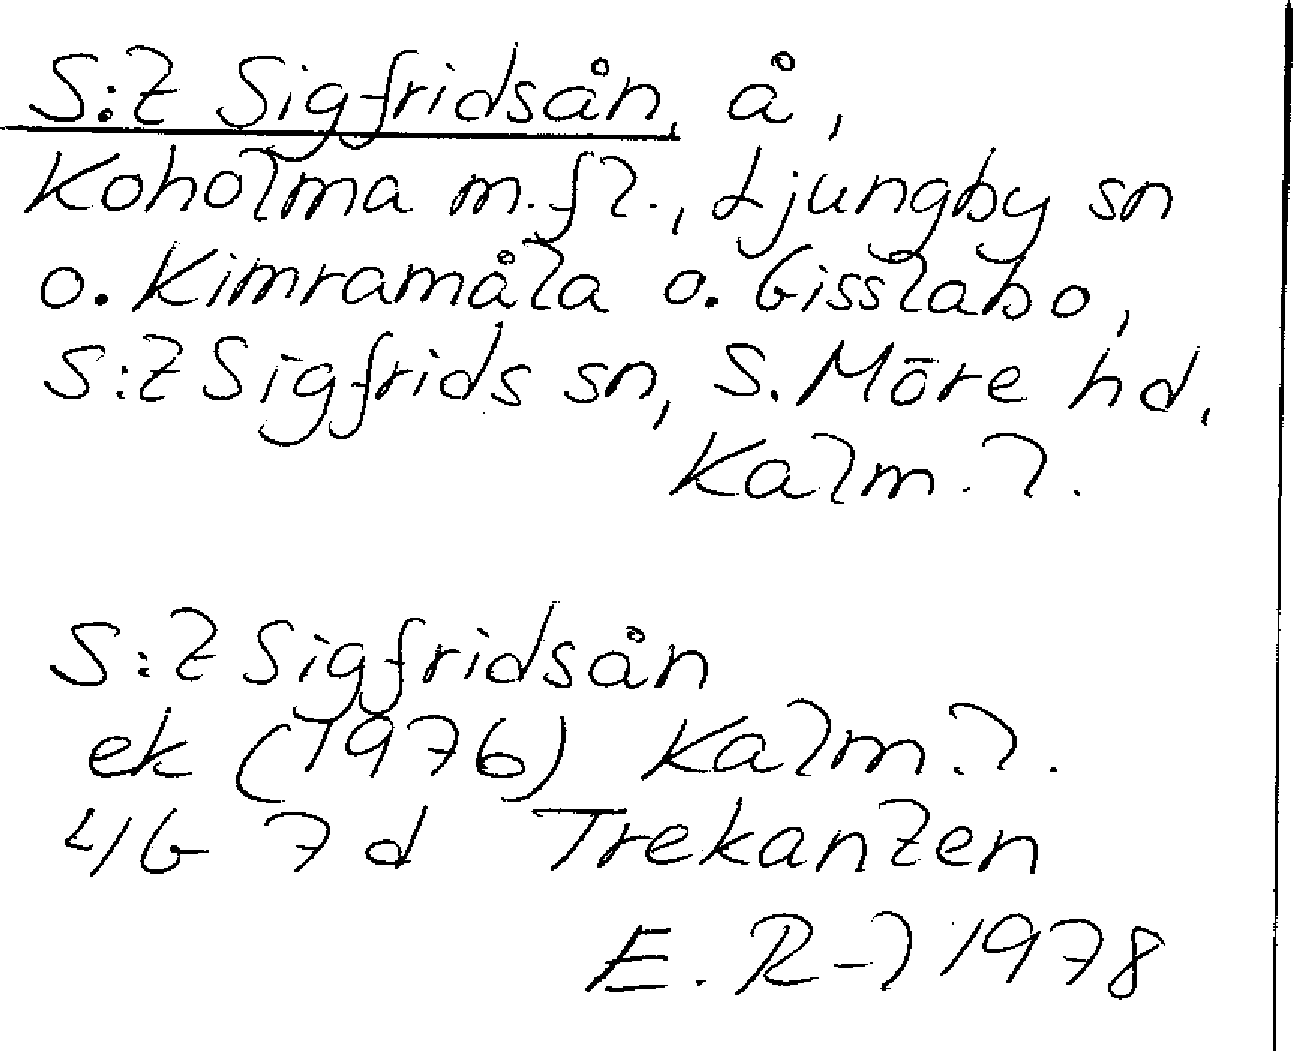 S:t Sigfridsån, å,
Koholma m.fl., Ljungby sn
o. Kimramåla o. Gisslabo,
S:t Sigfrids sn, S. Möre hd,
Kalm. l.
S:t Sigfridsån
ek (1976) Kalm. l.
4G 7d Trekanten
E. R-l 1978